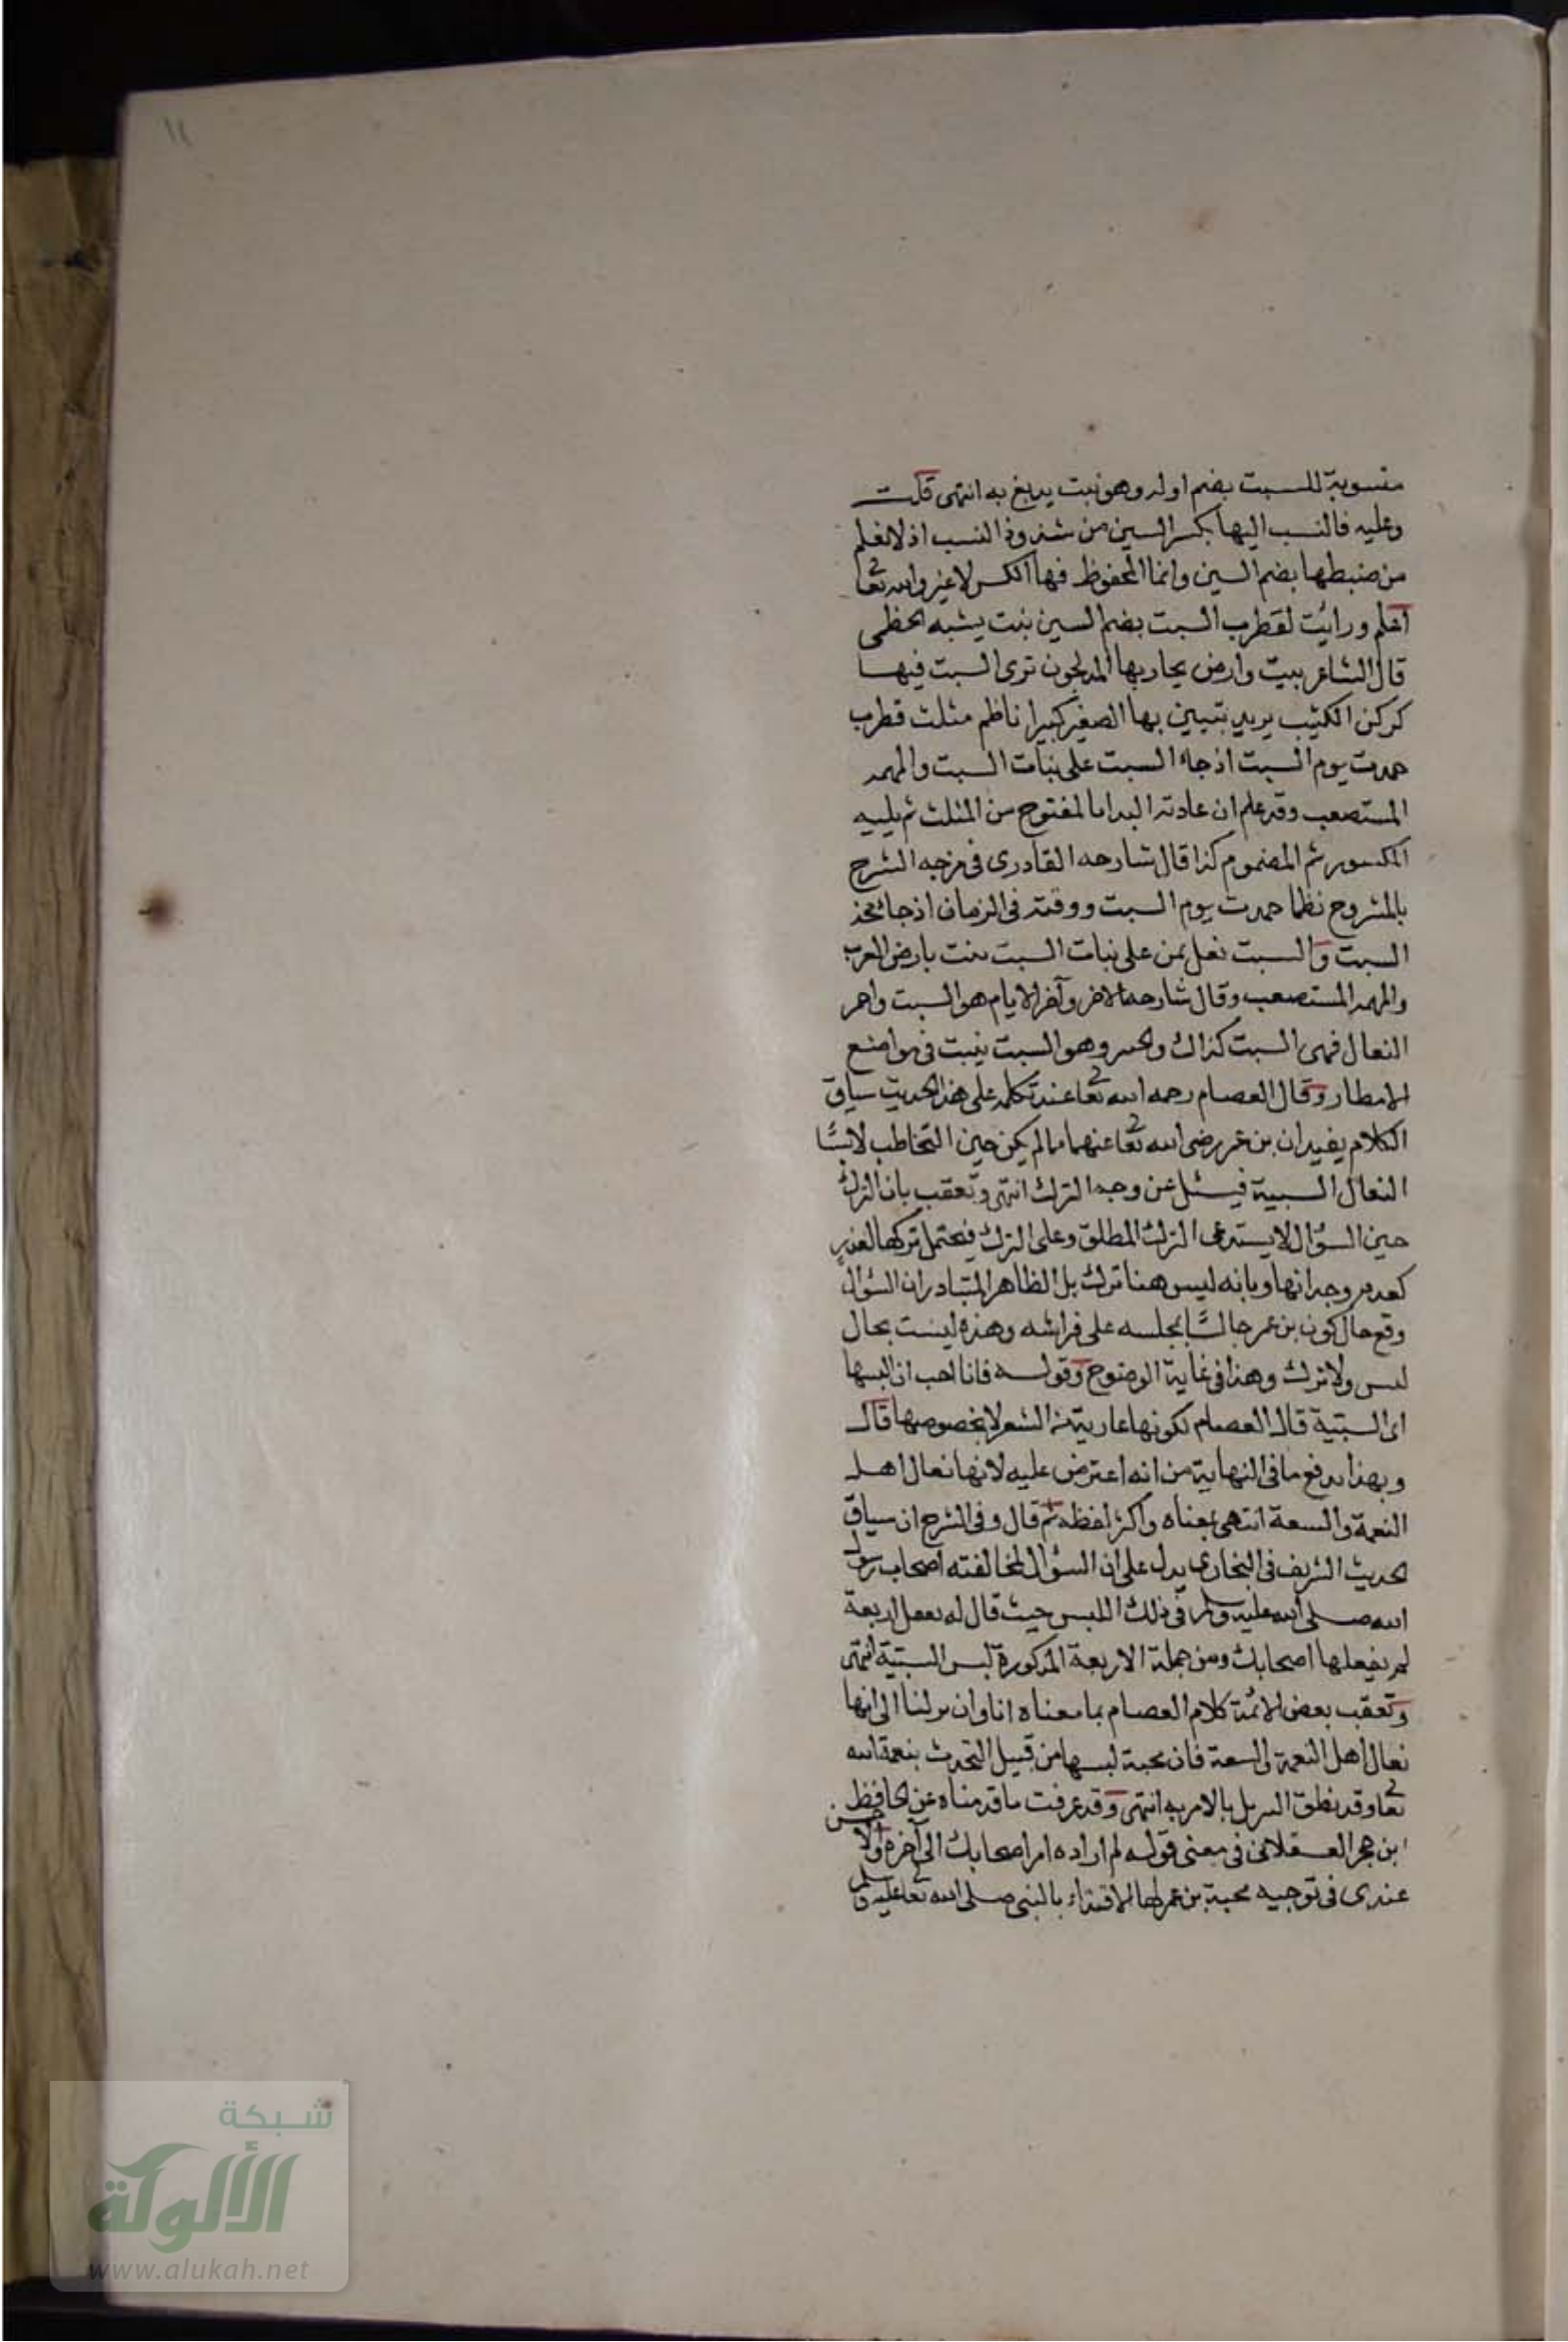 ١٤
منسوبة للسبت بضم اوله وهو نبت يدبغ به انتهى قلت
وعليه فالنسب اليها بكسر السين من شذوذ النسب اذ لا نعلم
من ضبطها بضم السين وانما المحفوظ فيها الكسر لا غير والله تعا
اعلم ورايت لقطرب السبت بضم السين نبت يشبه الخطمى
قال الشاعر ببيت وارض يحار بها المدلجون ترى السبت فيها
كركن الكثيب يريد بتبيين بها الصغير كبيرا ناظم مثلث قطرب
حمدت يوم السبت اذ جاء السبت على نبات السبت والمهمه
المستصعب وقد علم ان عادته البدا بالمفتوح من المثلث ثم يليه
المكسور ثم المضموم كذا قال شارحه القادرى فى مزجه الشرح
بالمشروح نظما حمدت يوم السبت ووقته فى الزمان اذ جاء محذ
السبت والسبت نعل يمن على نبات السبت نبت بارض العرب
والمهمه المستصعب وقال شارحه الاخر وآخر الايام هو السبت واحر
النعال فهى السبت كذاك وهو السبت ينبت فى مواضع
الامطار وقال العصام رحمه الله تعا عند تكلمه على هذا الحديث سياق
الكلام يفيد ان بن عمر رضى الله تعا عنهما لم يكن حين التخاطب لابسًا
النعال السبتية فيسئل عن وجه الترك انتهى وتعقب بان الترك
حين السؤال لا يستدعى الترك المطلق وعلى الترك فيحتمل تركها لعذرٍ
كعدم وجدانها وبانه ليس هنا ترك بل الظاهر المتبادر ان السؤال
وقع حال كون بن عمر جالسًا بمجلسه على فراشه وهذه ليست بحال
لبس ولا ترك وهذا فى غاية الوضوح وقوله فانا احب ان البسها
اى السبتية قال العصام لكونها عارية من الشعر لا بخصوصها قال
وبهذا يدفع ما فى النهاية من انه اعترض عليه لانها نعال اهل
النعمة والسعة انتهى بمعناه واكثر لفظه ثم قال وفى الشرح ان سياق
الحديث الشريف فى البخارى يدل على ان السؤال لمخالفته اصحاب رسول
الله صلى الله عليه وسلم فى ذلك اللبس حيث قال له تفعل اربعة
لم يفعلها اصحابك ومن جملة الاربعة المذكورة لبس السبتية انتهى
وتعقب بعض الائمة كلام العصام بما معناه انا وان نزلنا الى انها
نعال اهل النعمة والسعة فان محبة لبسها من قبيل التحدث بنعمة الله
تعا وقد نطق التنزيل بالامر به انتهى وقد عرفت ما قدمناه عن الحافظ
ابن حجر العسقلانى فى معنى قوله لم ار احدا من اصحابك الى آخره اولا
عندى فى توجيه محبة بن عمر لها الاقتداء بالنبى صلى الله تعا عليه وسلم
شبكة
الألوكة
www.alukah.net